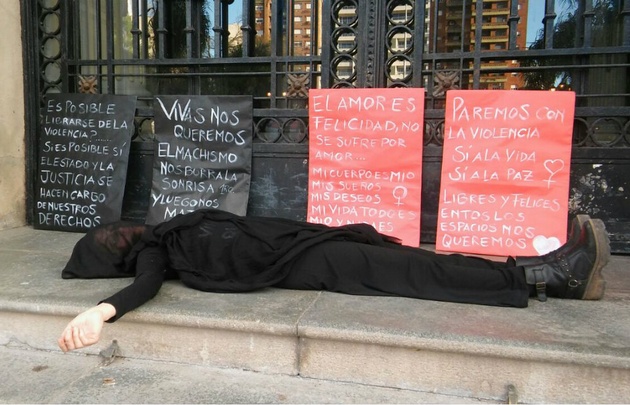 ES POSIBLE
LIBRARSE DE LA
VIOLENCIA?.....
SI ES POSIBLE SÍ
EL ESTADO Y LA
JUSTICIA SE
HACEN CARGO
DE NUESTROS
DERECHOS
VIVAS NOS
QUEREMOS
EL MACHISMO
NOS BURRA LA
SONRISA
Y LUEGO NOS
EL AMOR ES
FELICIDAD, NO
SE SUFRE POR
AMOR...
MI CUERPO ES MIO
MIS SUEÑOS
MIS DESEOS
MI VIDA TODO ES
PAREMOS CON
LA VIOLENCIA
SÍ A LA VIDA
SÍ A LA PAZ
LIBRES Y FELICES
EN TOS LOS
ESPACIOS NOS
QUEREMOS